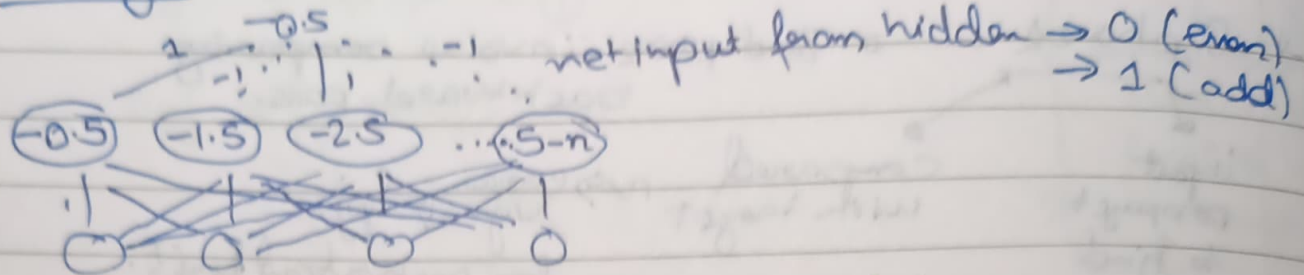 -0.5
1 -1 1 -1 net input from hidden → 0 (even)
→ 1 (odd)
-0.5 -1.5 -2.5 ... .5-n